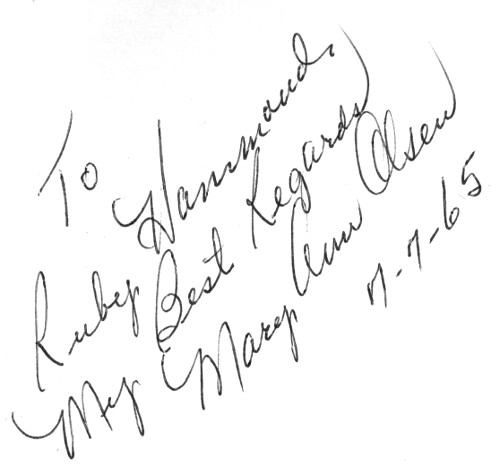 To
Ruby Hammond,
My Best Regards
Mary Ann Olsen
7-7-65